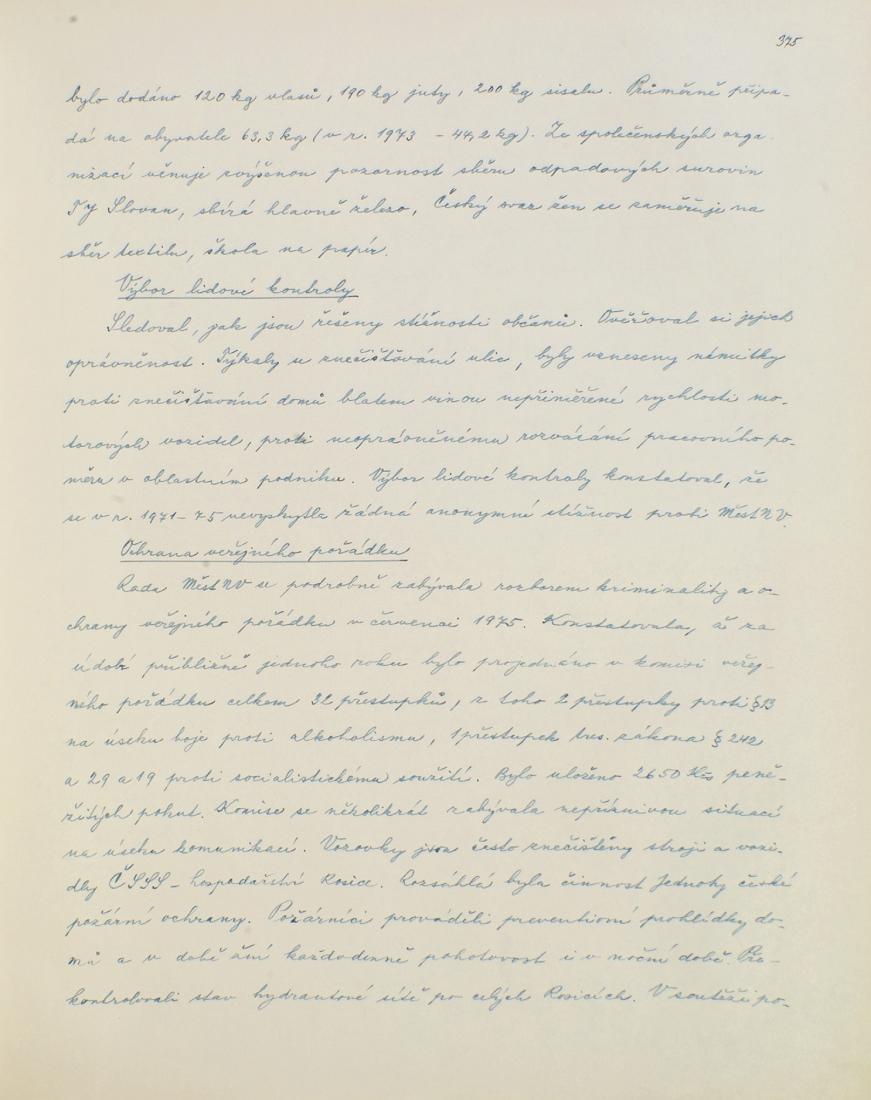 375
bylo dodáno 120 kg vlasů, 190 kg juty, 200 kg sisalu. Průměrně připa-
dá na obyvatele 63,3 kg (v r. 1973 - 44,2 kg). Ze společenských orga
nizací věnuje zvýšenou pozornost sběru odpadových surovin
TJ Slovan, sbírá hlavně železo, Český svaz žen se zaměřuje na
sběr textilu, škola na papír.
Výbor lidové kontroly
Sledoval, jak jsou řešeny stížnosti občanů. Ověřoval si jejich
oprávněnost. Týkaly se znečišťování ulic, byly vzneseny námitky
proti znečišťování domů blatem vinou nepřiměřené rychlosti mo-
torových vozidel, proti neoprávněnému rozvázání pracovního po-
měru v oblastním podniku. Výbor lidové kontroly konstatoval, že
se v r. 1971-75 nevyskytla žádná anonymní stížnost proti MěstNV.
Ochrana veřejného pořádku
Rada MěstNV se podrobně zabývala rozborem kriminality a o-
chrany veřejného pořádku v červenci 1975. Konstatovala, že za
údobí přibližně jednoho roku bylo projednáno v komisi veřej-
ného pořádku celkem 32 přestupků, z toho 2 přestupky proti § 13
na úseku boje proti alkoholismu, 1 přestupek tres. zákona § 242
a 29 a 19 proti socialistickému soužití. Bylo uloženo 2650 Kčs peně-
žitých pokut. Komise se několikrát zabývala nepříznivou situací
na úseku komunikací. Vozovky jsou často znečištěny stroji a vozi-
dly ČSSS - hospodářství Rosice. Rozsáhlá byla činnost Jednoty české
požární ochrany. Požárníci prováděli preventivní prohlídky do-
mů a v době žní každodenně pohotovost i v noční době. Pře-
kontrolovali stav hydrantové sítě po celých Rosicích. V soutěži po-